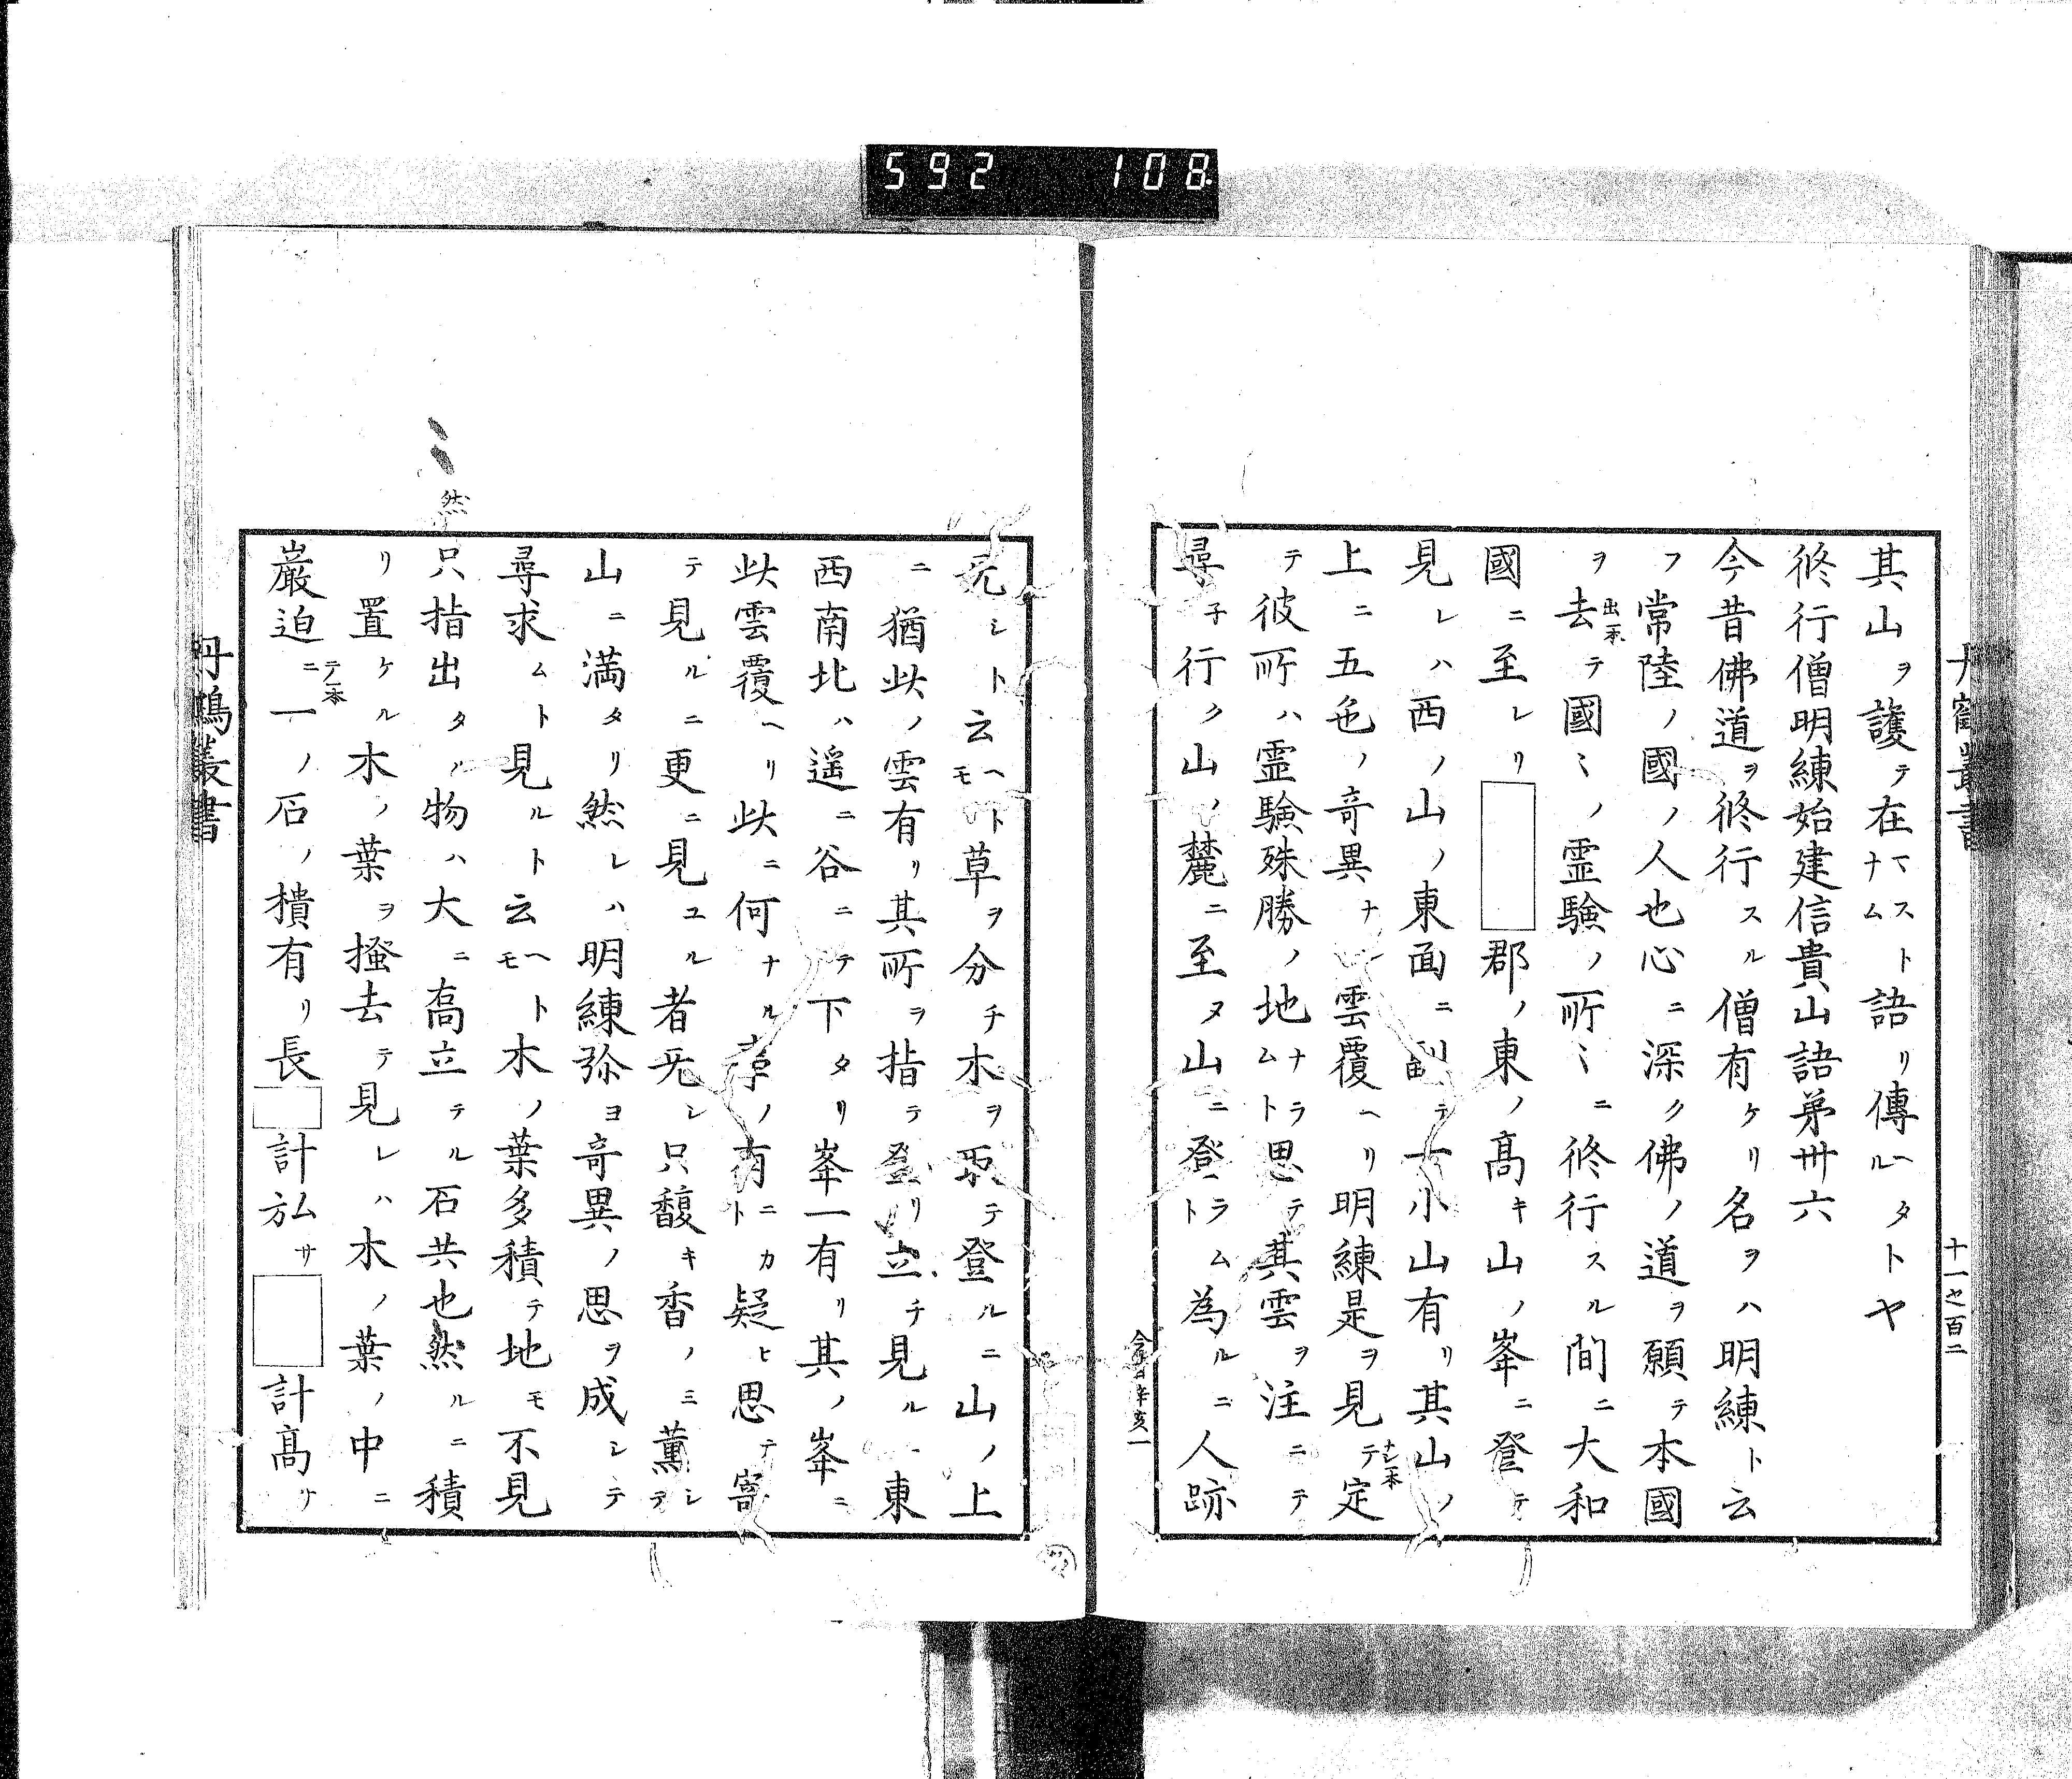 592 108
丹鶴叢書
十一之百二
其山ヲ護テ在マスナムト語リ傳ヘタルトヤ
修行僧明練始建信貴山語第卅六
今昔佛道ヲ修行スル僧有ケリ名ヲハ明練ト云
フ常陸ノ國ノ人也心ニ深ク佛ノ道ヲ願テ本國
ヲ去出一本テ國〻ノ霊験ノ所〻ニ修行スル間ニ大和
國ニ至レリ□郡ノ東ノ高キ山ノ峯ニ登テ
見レハ西ノ山ノ東面ニ副テ一小山有リ其山ノ
上ニ五色ノ奇異ナル雲覆ヘリ明練是ヲ見テナシ一本定
テ彼所ハ霊験殊勝ノ地ナラムト思テ其雲ヲ注ニテ
尋子行ク山ノ麓ニ至ヌ山ニ登ラムト為ルニ人跡
今昔辛亥一
无シト云ヘトモ草ヲ分チ木ヲ取テ登ルニ山ノ上
ニ猶此ノ雲有リ其所ヲ指テ登リ立チ見ル東
西南北ハ遥ニ谷ニテ下タリ峯一有リ其ノ峯ニ
此雲覆ヘリ此ニ何ナル事ノ有ニカト疑ヒ思テ寄
テ見ルニ更ニ見ユル者无シ只馥キ香ノミ薫シテ
山ニ満タリ然レハ明練弥ヨ奇異ノ思ヲ成シテ
尋求ムト見ルト云ヘトモ木ノ葉多積テ地モ不見
然
只指出タル物ハ大ニ高立テル石共也然ルニ積
リ置ケル木ノ葉ヲ掻去テ見レハ木ノ葉ノ中ニ
巖迫ニテ一本一ノ石ノ樻有リ長□計弘サ□計高サ
丹鶴叢書